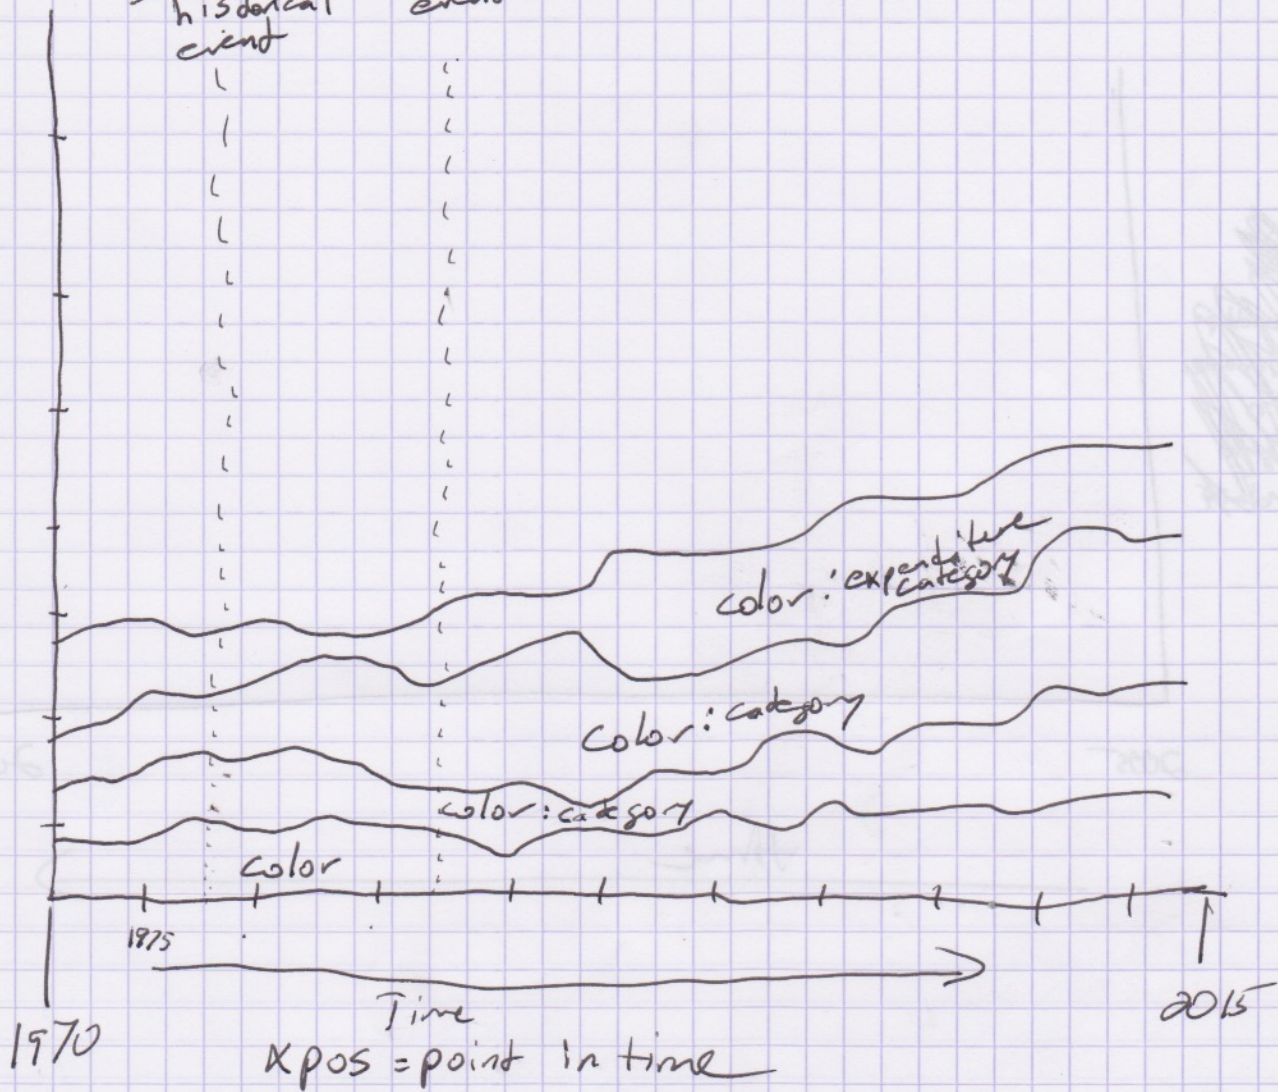 historical
event
event
color: expenditure
category
color: category
color: category
color
1975
Time
1970
2015
xpos = point in time